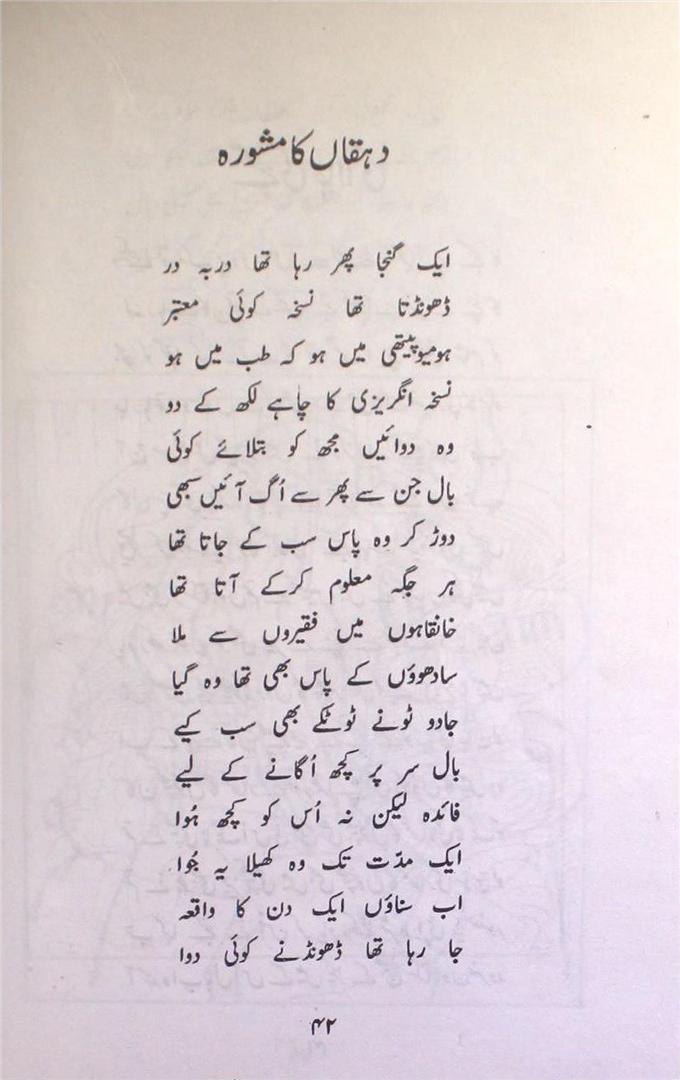 دہقاں کا مشورہ
ایک گنجا پھر رہا تھا در بہ در
ڈھونڈتا تھا نسخہ کوئی معتبر
ہومیوپیتھی میں ہو کہ طب میں ہو
نسخہ انگریزی کا چاہے لکھ کے دو
وہ دوائیں مجھ کو بتلائے کوئی
بال جن سے پھر سے اُگ آئیں سبھی
دوڑ کر وہ پاس سب کے جاتا تھا
ہر جگہ معلوم کرکے آتا تھا
خانقاہوں میں فقیروں سے ملا
سادھوؤں کے پاس بھی تھا وہ گیا
جادو ٹونے ٹوٹکے بھی سب کیے
بال سر پر کچھ اُگانے کے لیے
فائدہ لیکن نہ اُس کو کچھ ہُوا
ایک مدّت تک وہ کھیلا یہ جُوا
اب سناؤں ایک دن کا واقعہ
جا رہا تھا ڈھونڈنے کوئی دوا
۴۲